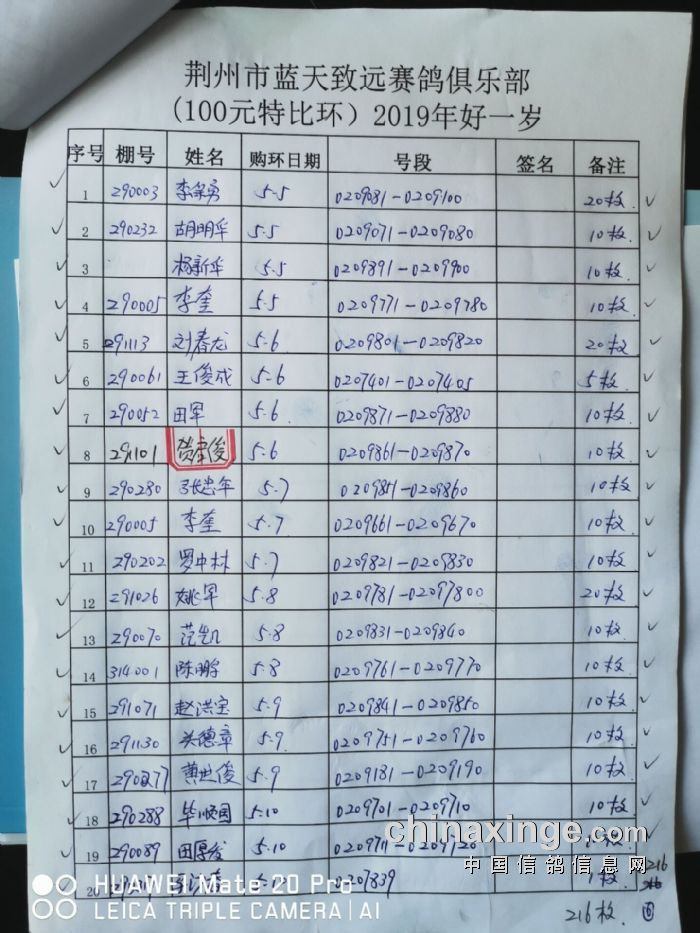 荆州市蓝天致远赛鸽俱乐部
(100元特比环）2019年好一岁
序号 棚号 姓名 购环日期 号段 签名 备注
1 290003 5.5 0209081-0209100 20枚
2 290232 胡明华 5.5 0209071-0209080 10枚
3 杨新华 5.5 0209891-0209900 10枚
4 290005 李奎 5.5 0209771-0209780 10枚
5 291113 刘春龙 5.6 0209801-0209820 20枚
6 290061 王俊成 5.6 0207401-0207405 5枚
7 290052 田军 5.6 0209871-0209880 10枚
8 291101 5.6 0209861-0209870 10枚
9 290280 张忠年 5.7 0209851-0209860 10枚
10 290005 李奎 5.7 0209661-0209670 10枚
11 290202 罗中林 5.7 0209821-0209830 10枚
12 291026 姚军 5.8 0209781-02097800 20枚
13 290070 范凯 5.8 0209831-0209840 10枚
14 314001 陈鹏 5.8 0209761-0209770 10枚
15 291071 赵洪宝 5.9 0209841-0209850 10枚
16 291130 关德章 5.9 0209751-0209760 10枚
17 290277 黄世俊 5.9 0209181-0209190 10枚
18 290288 毕顺国 5.10 0209701-0209710 10枚
19 290089 田厚发 5.10 0209711-0209720
20 0207839 1枚
216
216枚
chinaxinge.com
中国信鸽信息网
HUAWEI Mate 20 Pro
LEICA TRIPLE CAMERA | AI